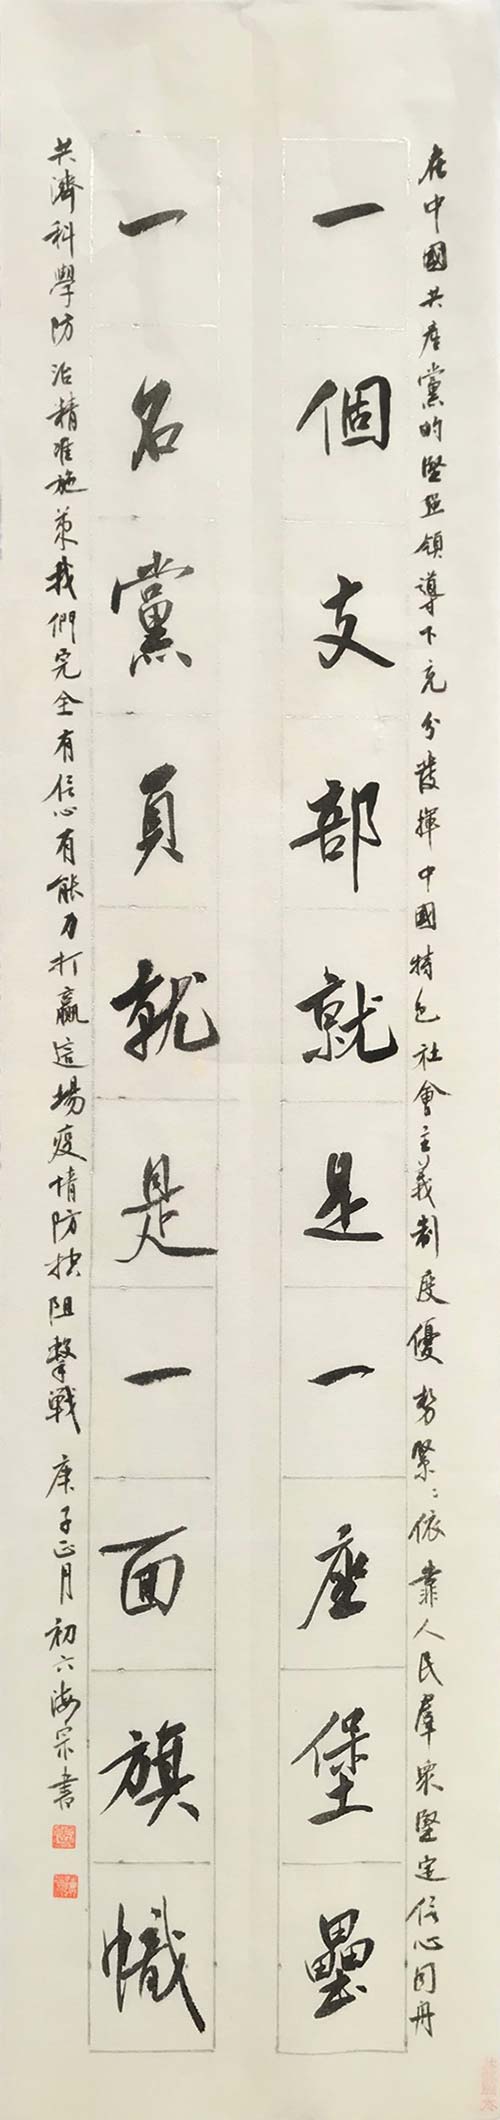 在中國共產黨的堅強領導下充分發揮中國特色社會主義制度優勢緊〻依靠人民羣眾堅定信心同舟
一個支部就是一座堡壘
一名黨員就是一面旗幟
共濟科學防治精准施策我們完全有信心有能力打贏這場疫情防控阻擊戰 庚子正月初六海宗書